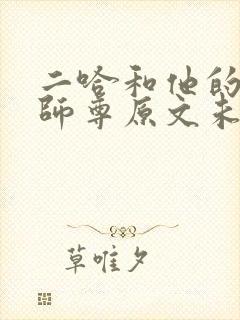 二哈和他的
師尊原文未
草唯夕